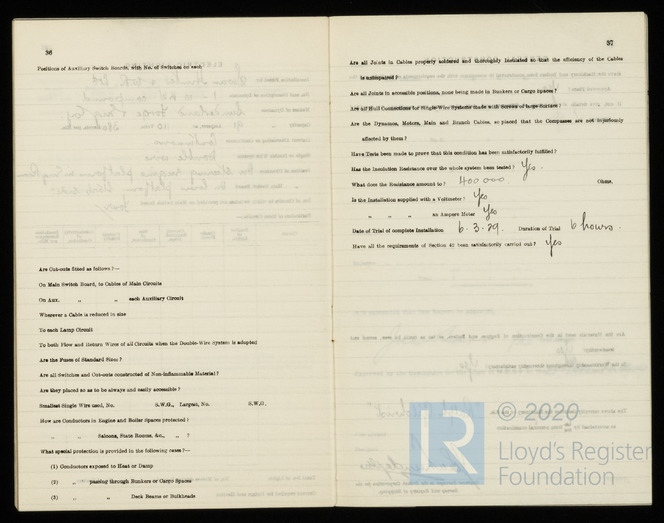 36
Positions of Auxiliary Switch Boards, with No. of Switches on each
Are Cut-outs fitted as follows?—
On Main Switch Board, to Cables of Main Circuits
On Aux. „ „ each Auxiliary Circuit
Wherever a Cable is reduced in size
To each Lamp Circuit
To both Flow and Return Wires of all Circuits when the Double-Wire System is adopted
Are the Fuses of Standard Sizes?
Are all Switches and Cut-outs constructed of Non-inflammable Material?
Are they placed so as to be always and easily accessible?
Smallest Single Wire used, No. S.W.G., Largest, No. S.W.G.
How are Conductors in Engine and Boiler Spaces protected?
„ „ Saloons, State Rooms, &c., „ ?
What special protection is provided in the following cases?—
(1) Conductors exposed to Heat or Damp
(2) „ passing through Bunkers or Cargo Spaces
(3) „ „ Deck Beams or Bulkheads
37
Are all Joints in Cables properly soldered and thoroughly insulated so that the efficiency of the Cables
is unimpaired?
Are all Joints in accessible positions, none being made in Bunkers or Cargo Spaces?
Are all Hull Connections for Single-Wire Systems made with Screws of large Surface?
Are the Dynamos, Motors, Main and Branch Cables, so placed that the Compasses are not injuriously
affected by them?
Have Tests been made to prove that this condition has been satisfactorily fulfilled?
Has the Insulation Resistance over the whole system been tested? Yes.
What does the Resistance amount to? 400000 Ohms.
Is the Installation supplied with a Voltmeter? Yes
„ „ „ an Ampere Meter Yes
Date of Trial of complete Installation 6.3.29. Duration of Trial 6 hours.
Have all the requirements of Section 42 been satisfactorily carried out? Yes
LR
© 2020
Lloyd's Register
Foundation